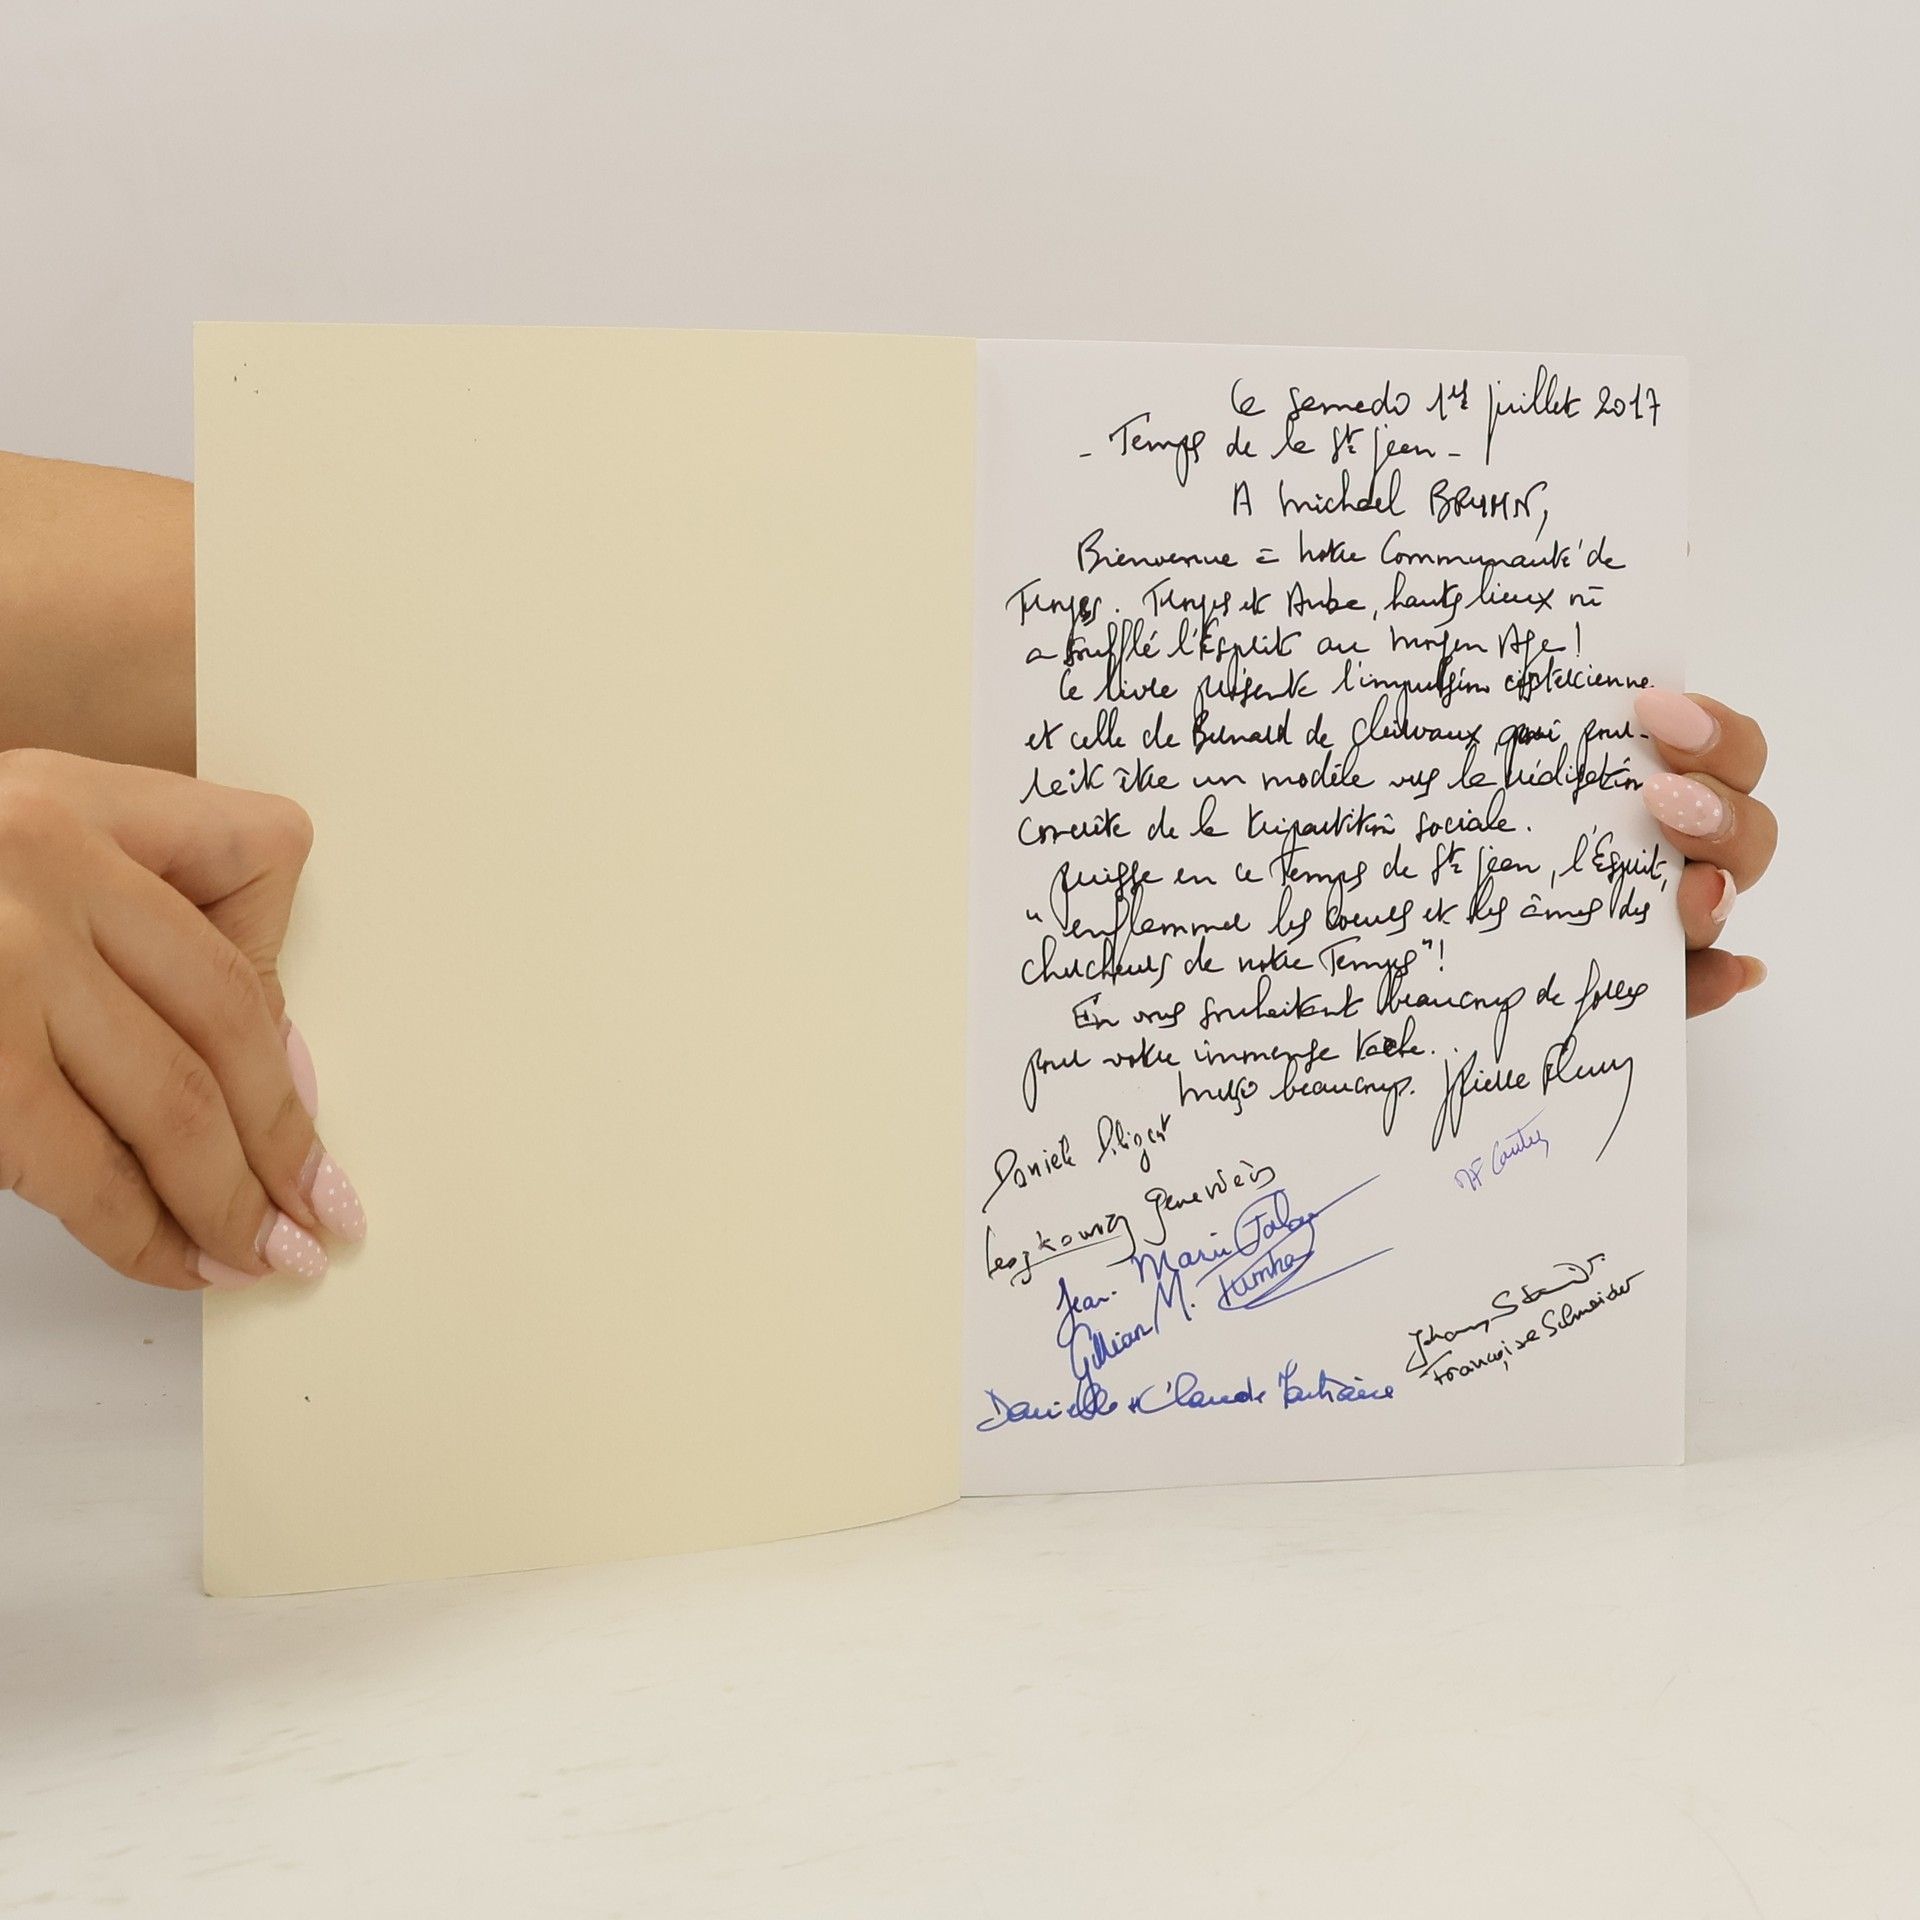 Ce samedi 1er juillet 2017
- Temps de la St Jean -
A Michael BRUHN,
Bienvenue à notre Communauté de
Troyes. Troyes et Aube, hauts lieux où
a soufflé l'Esprit au Moyen Age !
Ce livre présente l'impulsion cistercienne
et celle de Bernard de Clairvaux, qui pour-
rait être un modèle vers la réalisation
concrète de la tripartition sociale.
Puisse en ce Temps de St Jean, l'Esprit,
"enflammer les coeurs et les âmes des
chercheurs de notre Temps" !
En vous souhaitant beaucoup de forces
pour votre immense tâche..
Merci beaucoup.
Danièle Diligent
Geneviève
Jean-Marie
Gillian M.
Françoise Schneider
Danielle + Claude